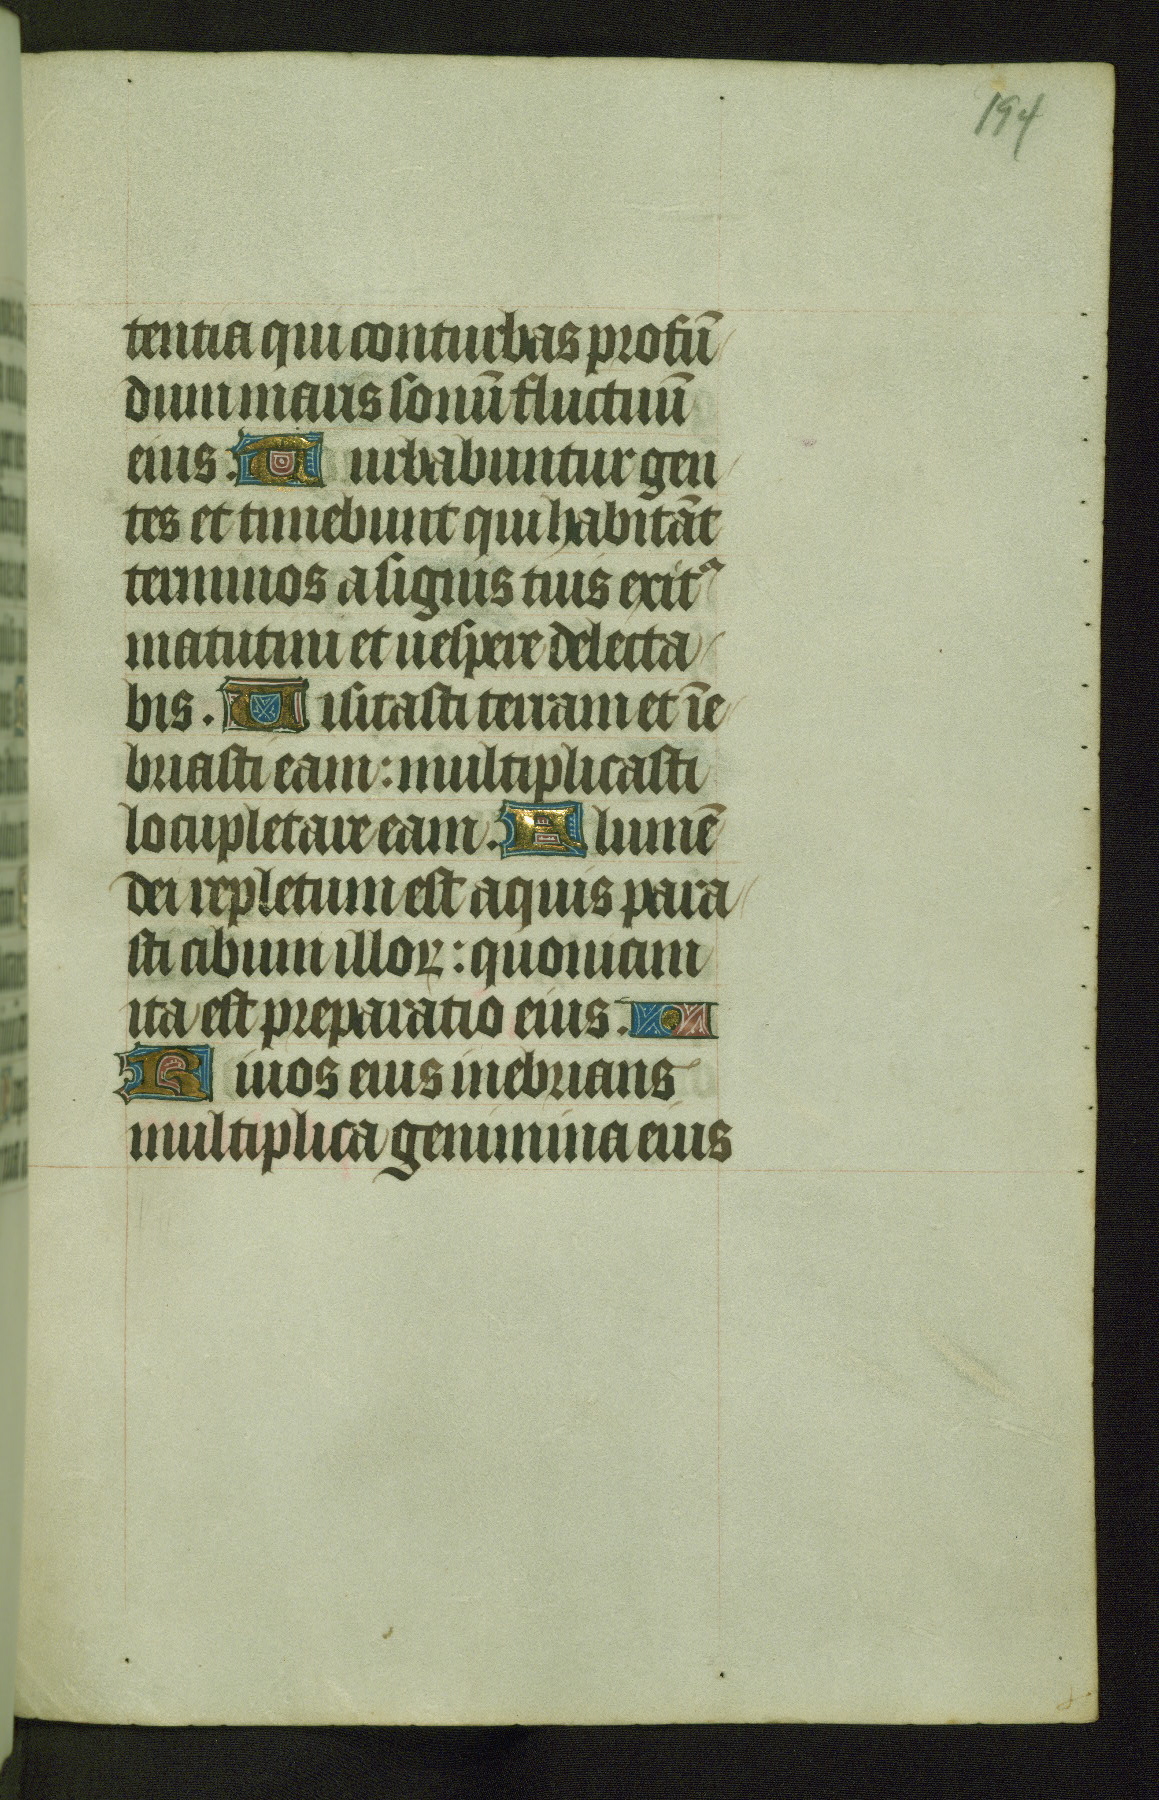 194
tentia qui conturbas profū
dum maris sonū fluctuū
eius. Turbabuntur gen
tes et timebunt qui habitāt
terminos a signis tuis exitᵃ
matutini et uespere delecta
bis. Uisitasti terram et īe
briasti eam: multiplicasti
locupletare eam. Flumē
dei repletum est aquis para
sti cibum illoꝝ: quoniam
ita est preparatio eius.
Riuos eius inebrians
multiplica genimina eius